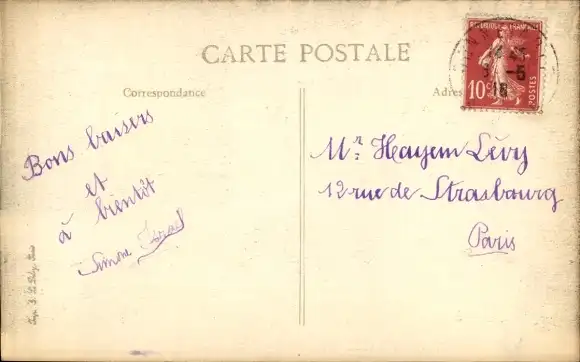 CARTE POSTALE
Correspondance
Adres
REPUBLIQUE FRANÇAISE
10c
POSTES
-5
18
Bons baisers
et
à bientôt
Simone
Mr Hayem Lévy
12 rue de Strasbourg
Paris